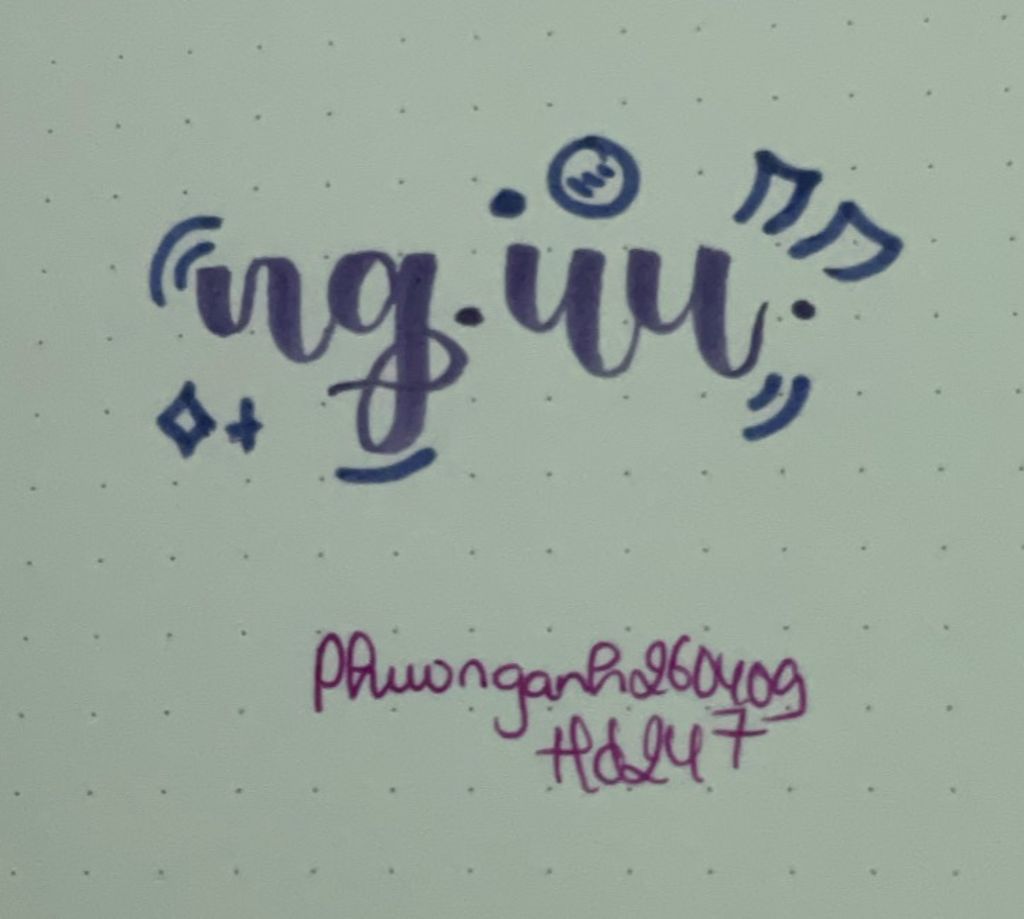 ng.iuu.
phuonganh260409
Hd247